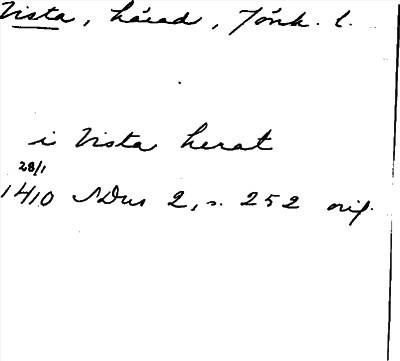 Vista, härad, Jönk. l.
i Vista herat
28/1
1410 SDns 2, s. 252 orig.